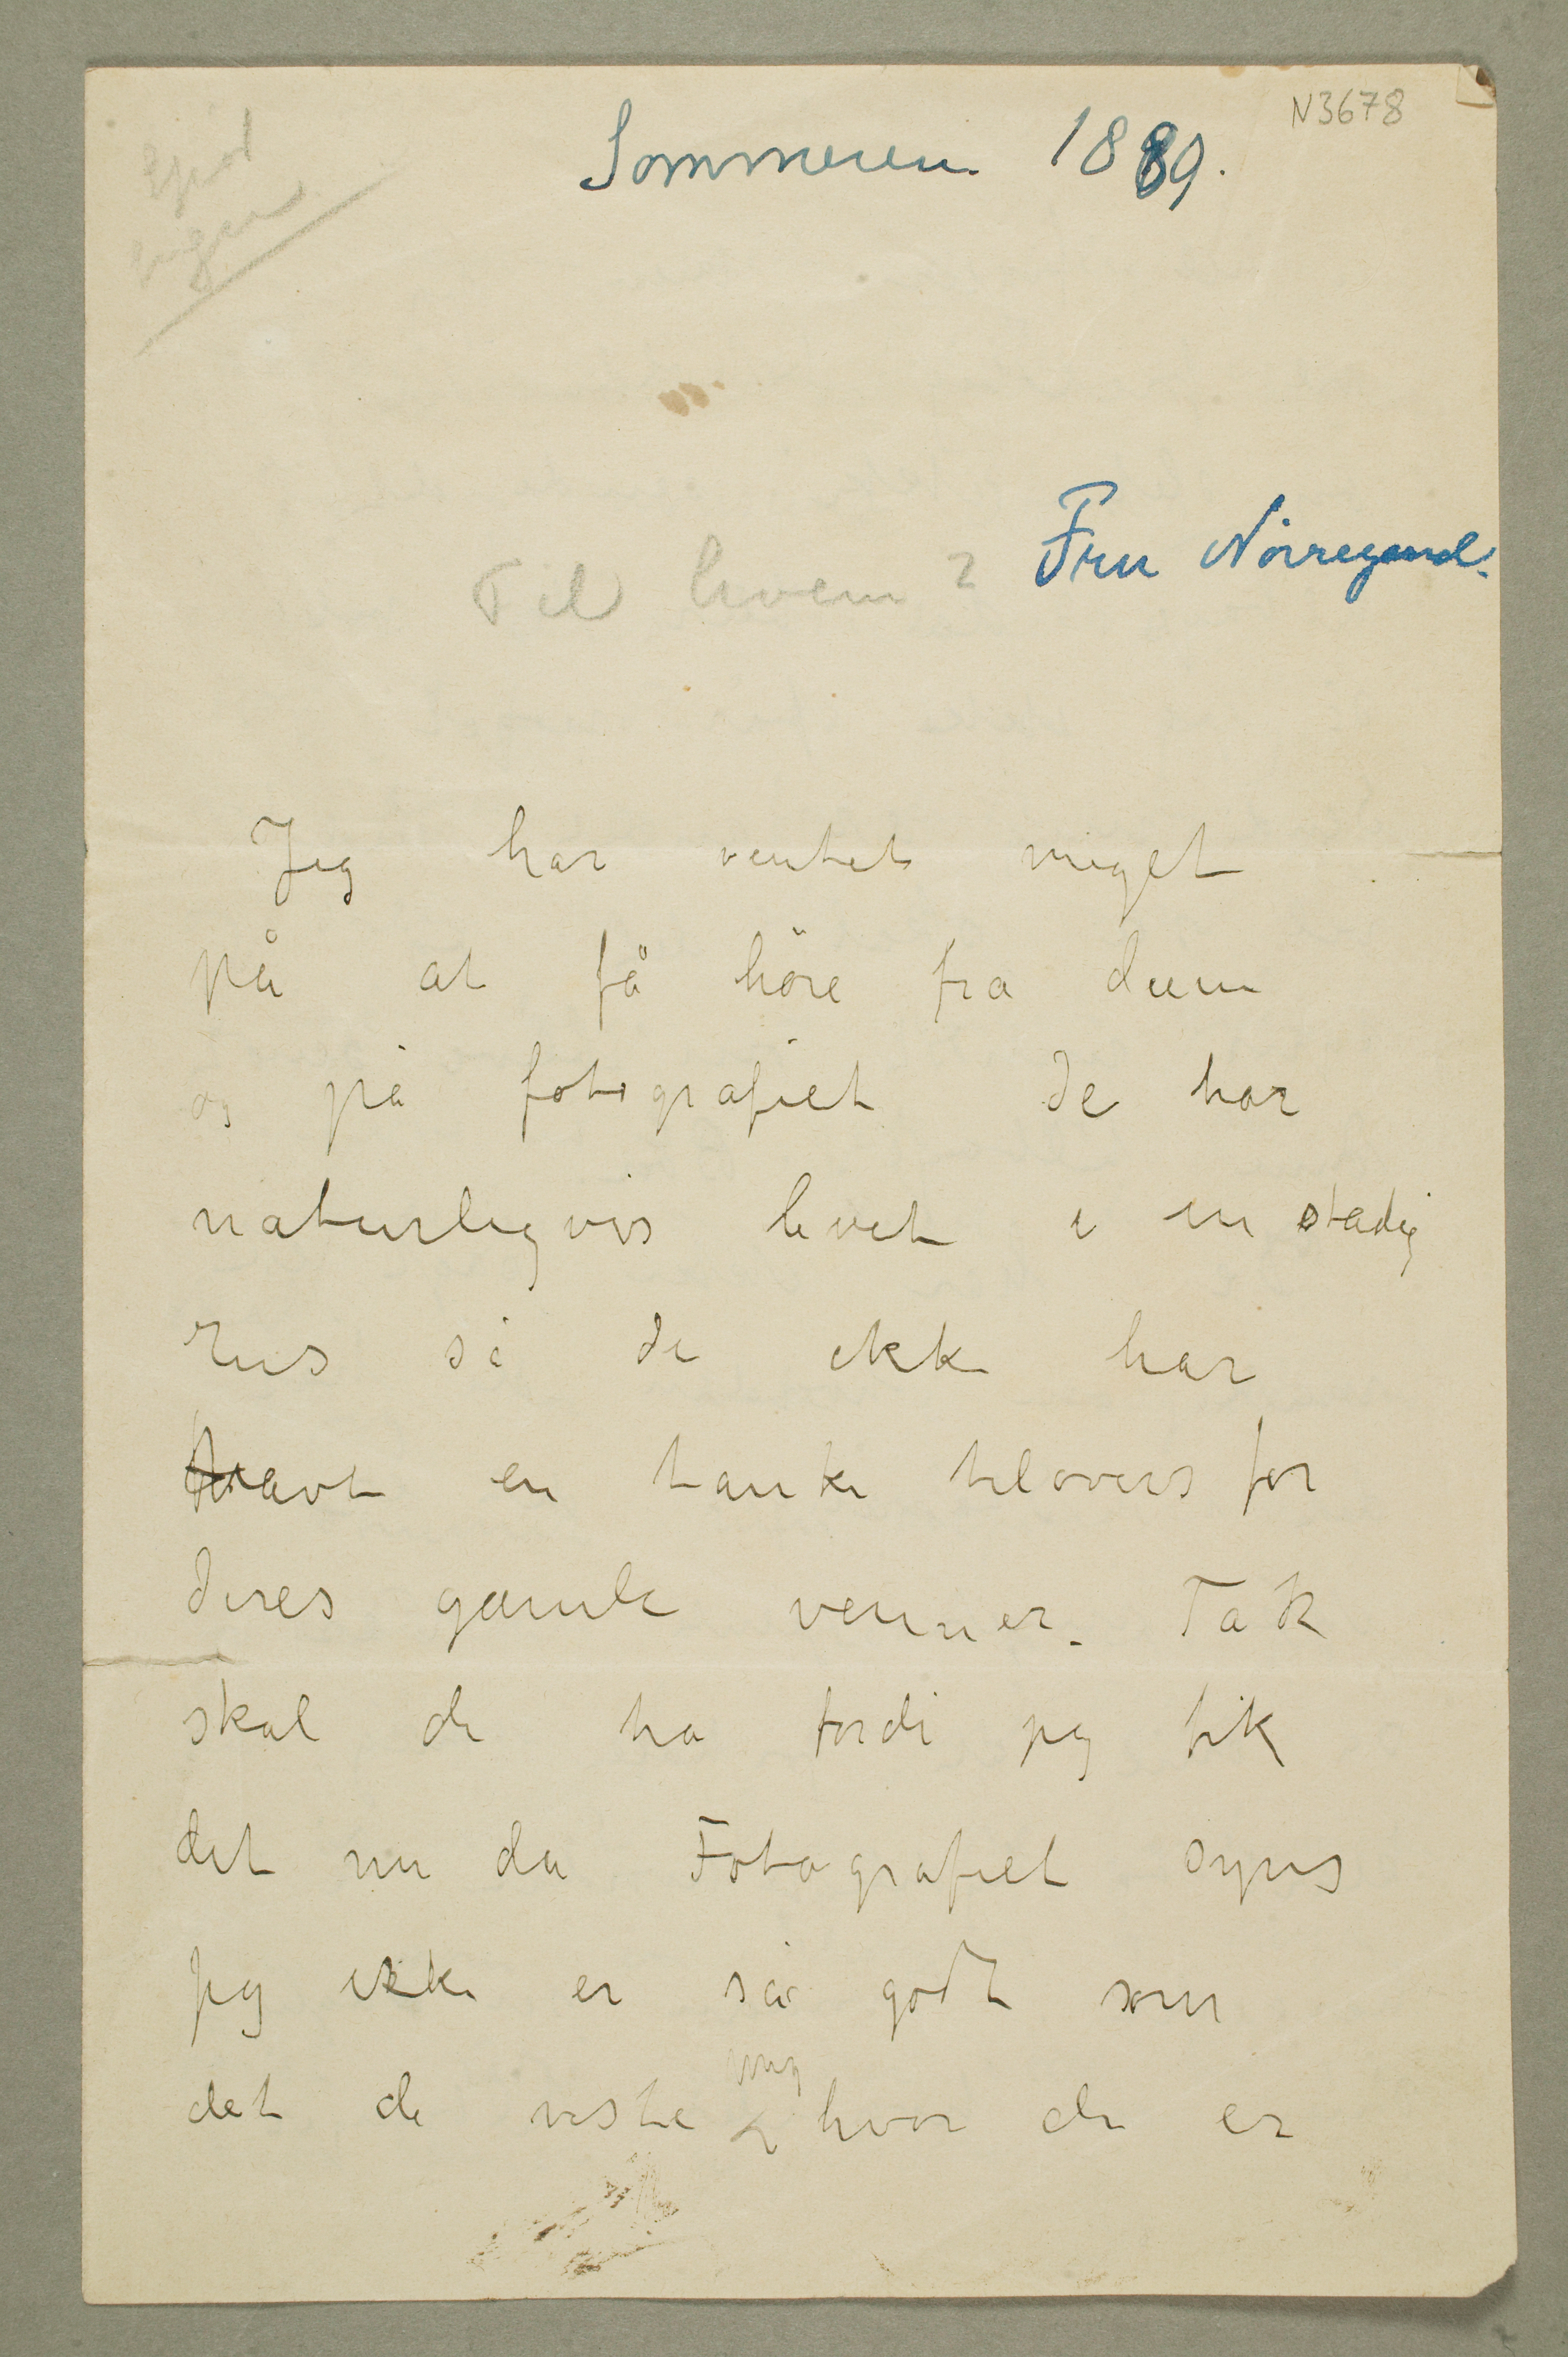 N3678
Sommeren 1889.
Til hvem? Fru Nørregaard.
Jeg har ventet meget
på at få höre fra dem
og på fotografiet De har
naturligvis levet i en stadig
rus så de ikke har
havt en tanke tilovers for
deres gamle venner. Tak
skal de ha fordi jeg fik
det nu da Fotografiet synes
jeg ikke er så godt som
mig
det de viste hvor de er